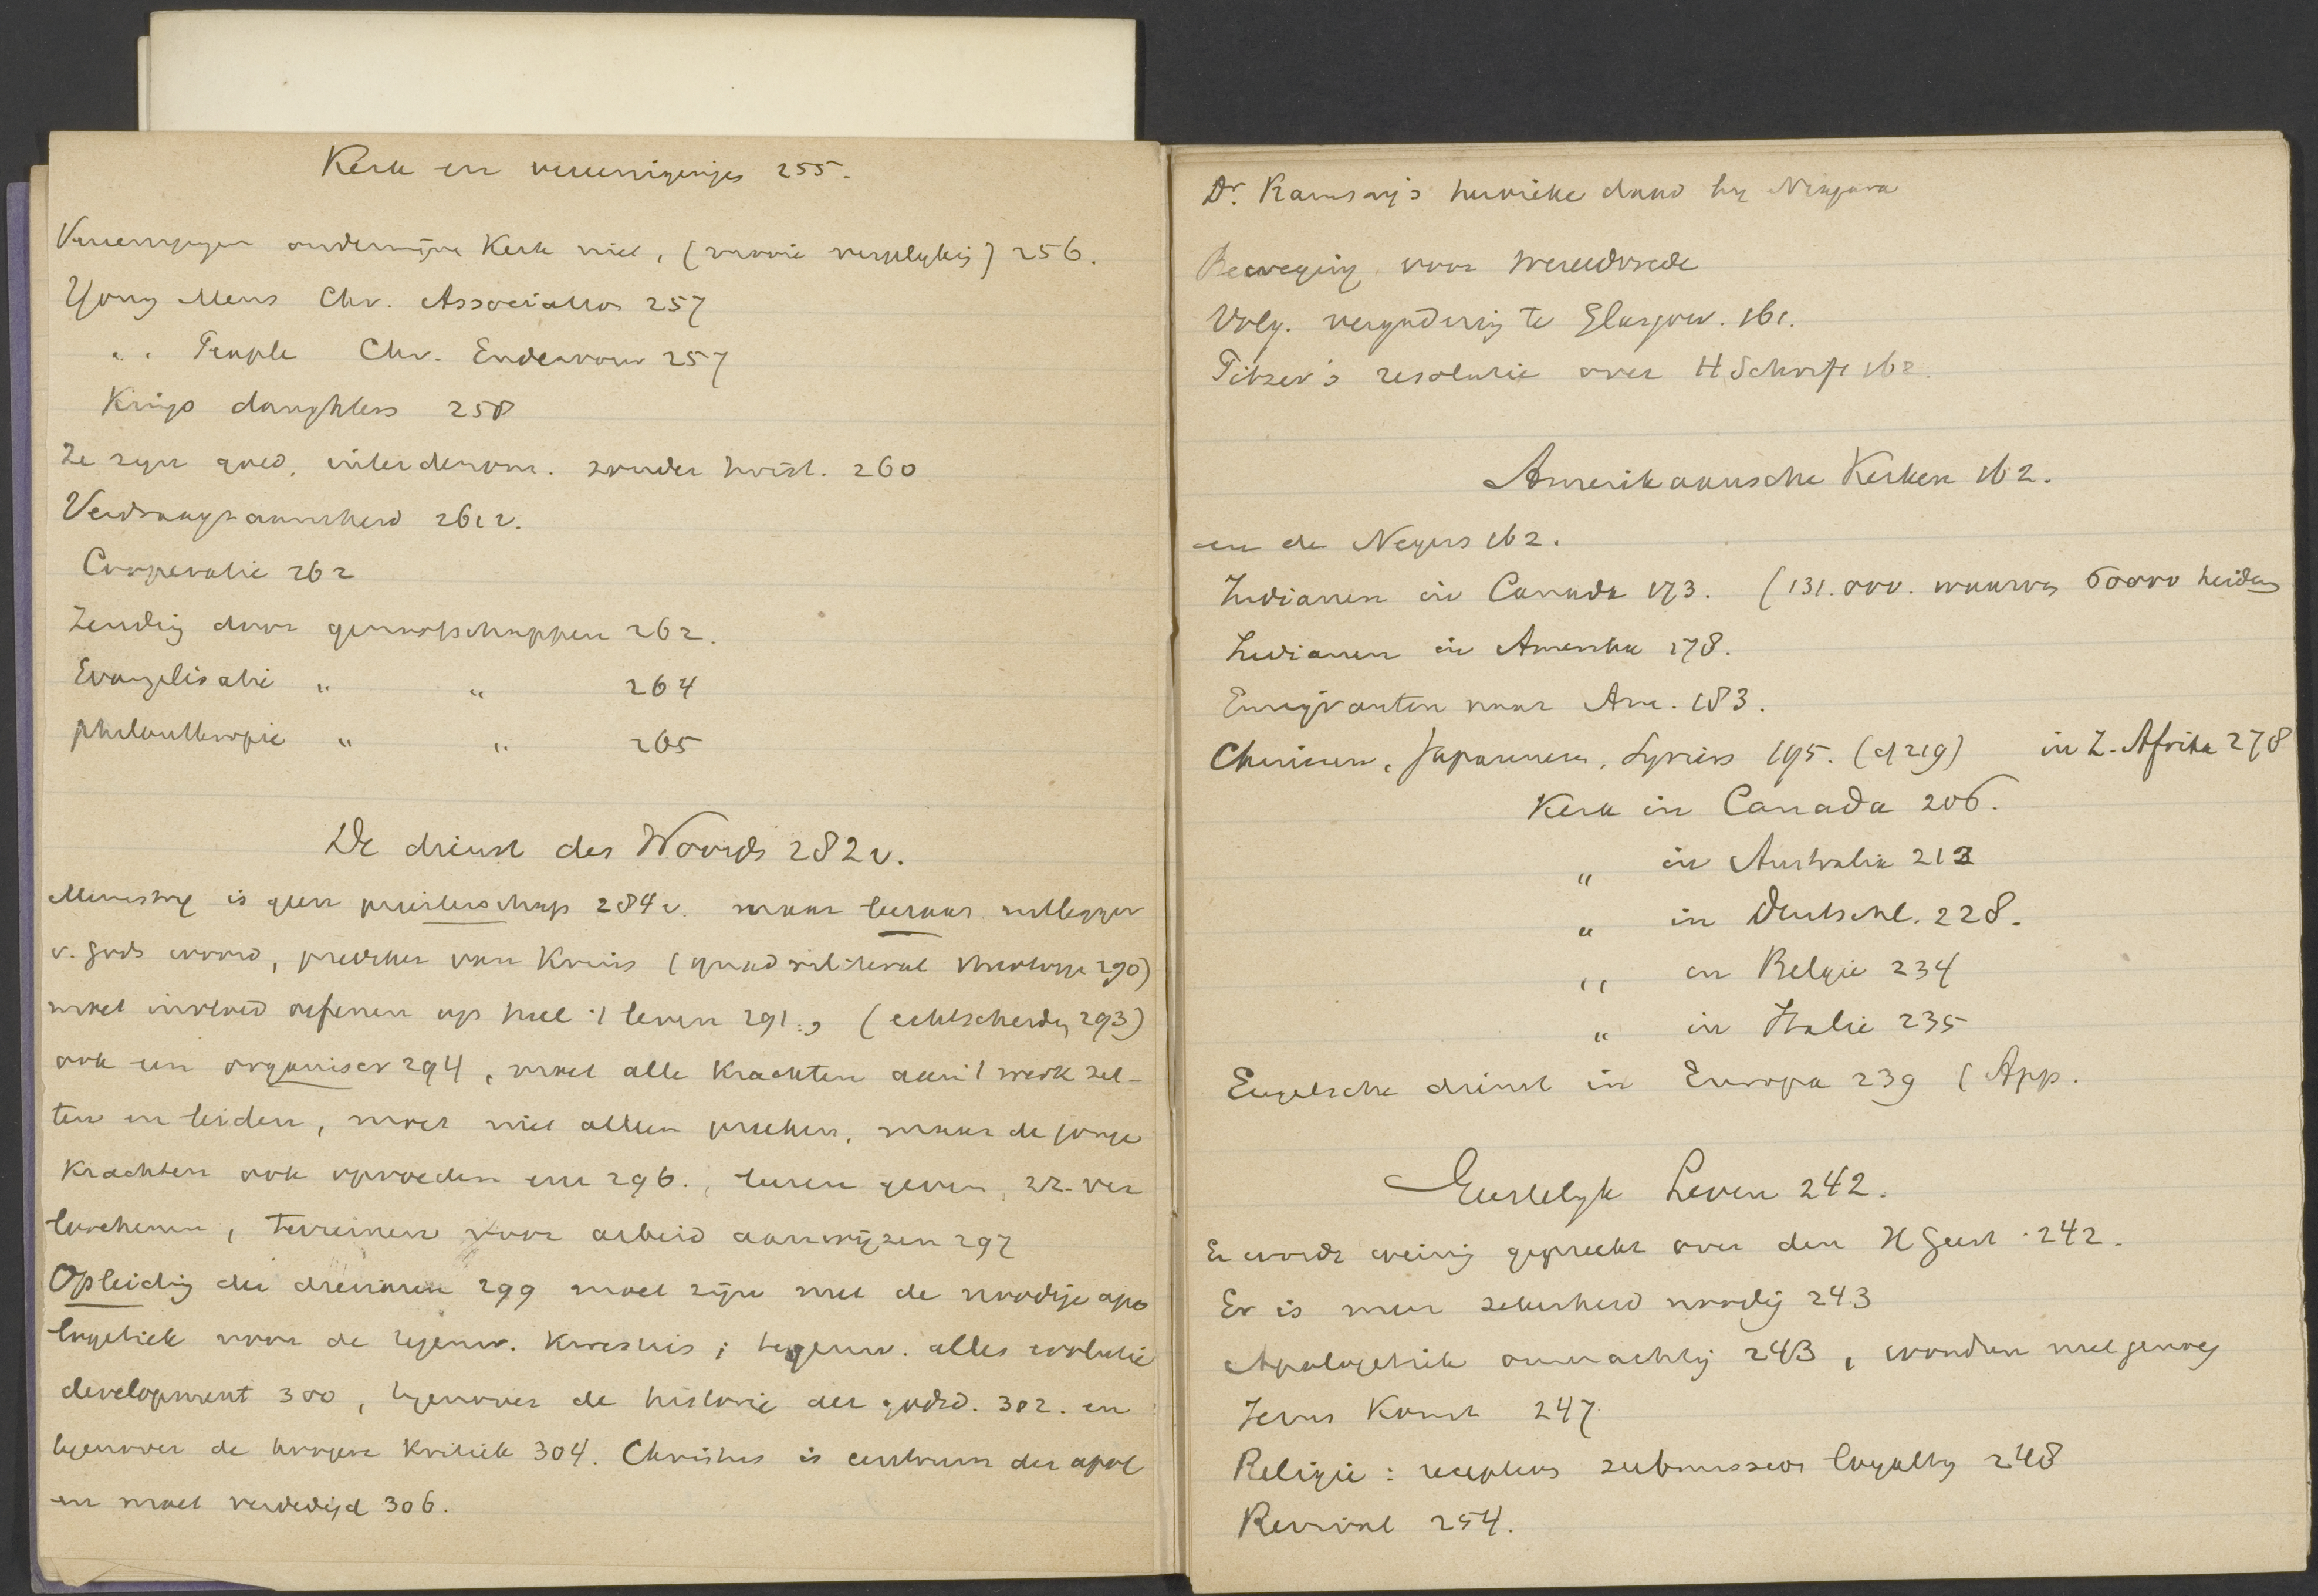 Kerk en vereenigingen 255.
Vereenigingen ondermijnen Kerk niet, (mooie vergelijking) 256.
Yong Mens Chr. Association 257
" People Chr. Endeavour 257
Kings daughters 258
Ze zijn goed. interdenom. zonder twist. 260
Verdraagzaamheid 261 v.
Cooperatie 262
Zending door genootschappen 262.
Evangelisatie " " 264
philanthropie " " 265
De dienst des Woords 282 v.
Ministry is geen priesterschap 284 v. maar leeraar uitlegger
v. Gods woord, prediker van Kruis (quadrilateral theology 290)
moet invloed oefenen op heel 't leven 291: , (echtscheiding 293)
ook een organiser 294, moet alle Krachten aan 't werk zet-
ten en leiden, moet niet alleen preeken, maar de jonge
Krachten ook opvoeden enz 296., geven,
, terreinen voor arbeid aanwijzen 297
Opleiding der dienaren 299 moet zijn met de noodige apo
logetiek voor de tegenw. Kwesties; tegenw. alles evolutie
development 300, tegenover de historie der godsd. 302. en
tegenover de hoogere Kritiek 304. Christus is centrum der apol
en moet verdedigd 306.
Dr. Ramsay's heroieke daad by Niagara
Beweging voor wereldvrede
Volg. vergadering te Glasgow. 161.
resolutie over H Schrift 162.
Amerikaansche Kerken 162.
en de Negers 162.
Indianen in Canada 173. (131.000. waarvan heidens
Indianen in Amerika 178.
Emigranten naar Am. 183.
Chinezen, Japaneezen, Syriers 195. (cf 219) in Z. Afrika 278
Kerk in Canada 206.
" in Australie 213
" in Deutschl. 228.
" in Belgie 234
" in Italie 235
Engelsche dienst in Europa 239 (App.
Geestelijk Leven 242.
Er wordt weinig gepreekt over den H Geest 242.
Er is meer zekerheid noodig 243
Apologetiek onmachtig 243, wondren niet genoeg
Jezus Komst 247
Religie: submission loyalty 248
Revival 254.